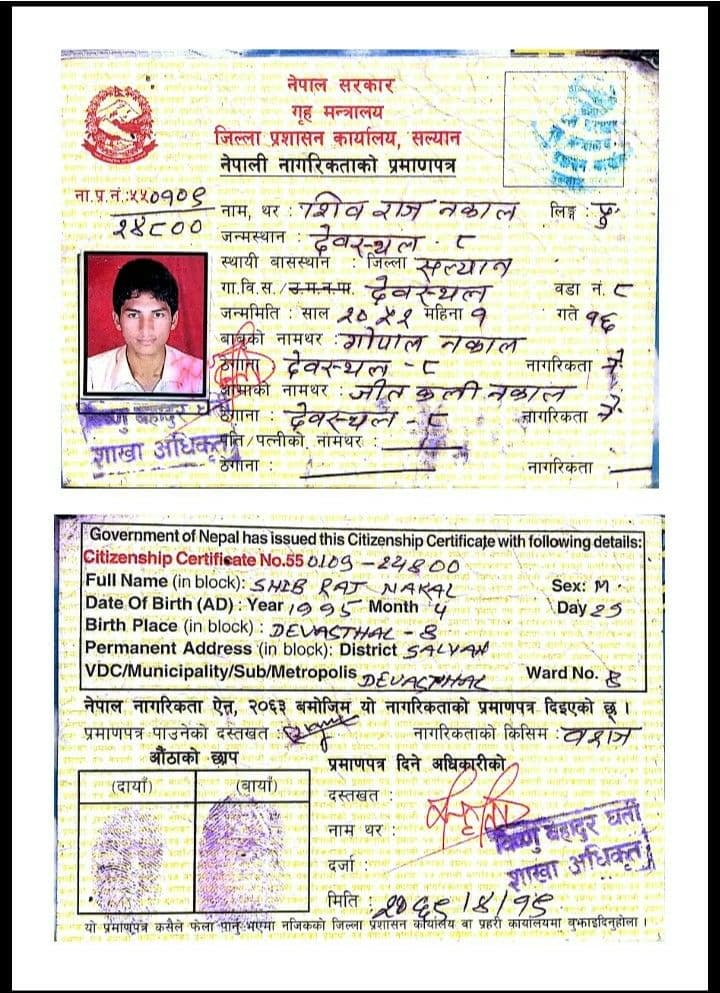 नेपाल सरकार
गृह मन्त्रालय
जिल्ला प्रशासन कार्यालय, सल्यान
नेपाली नागरिकताको प्रमाणपत्र
ना.प्र.नं.:५५०१०९
२४८००
नाम, थर : शिव राज नकाल लिङ्ग : पु
जन्मस्थान : देवस्थल - ८
स्थायी बासस्थान : जिल्ला सल्यान
गा.वि.स./उ.म.न.पा. देवस्थल वडा नं. ८
जन्ममिति : साल २०५२ महिना १ गते १६
बाबुको नामथर : गोपाल नकाल
ठेगाना : देवस्थल - ८ नागरिकता
आमाको नामथर : जीत कली नकाल
ठेगाना : देवस्थल - ८ नागरिकता
पति/पत्नीको नामथर :
ठेगाना : नागरिकता :
शाखा अधिकृत
Government of Nepal has issued this Citizenship Certificate with following details:
Citizenship Certificate No.55 0109-24800
Full Name (in block): SHIB RAJ NAKAL Sex: M.
Date Of Birth (AD) : Year 1995 Month 4 Day 29
Birth Place (in block) : DEVASTHAL - 8
Permanent Address (in block): District SALYAN
VDC/Municipality/Sub/Metropolis DEVASTHAL Ward No. 8
नेपाल नागरिकता ऐन, २०६३ बमोजिम यो नागरिकताको प्रमाणपत्र दिइएको छ।
प्रमाणपत्र पाउनेको दस्तखत : नागरिकताको किसिम : वंशज
औंठाको छाप
(दायाँ) (बायाँ)
प्रमाणपत्र दिने अधिकारीको
दस्तखत :
नाम थर : विष्णु बहादुर घर्ती
दर्जा : शाखा अधिकृत
मिति : २०६९/४/१९
यो प्रमाणपत्र कसैले फेला पार्नु भएमा नजिकको जिल्ला प्रशासन कार्यालय वा प्रहरी कार्यालयमा बुझाइदिनुहोला।